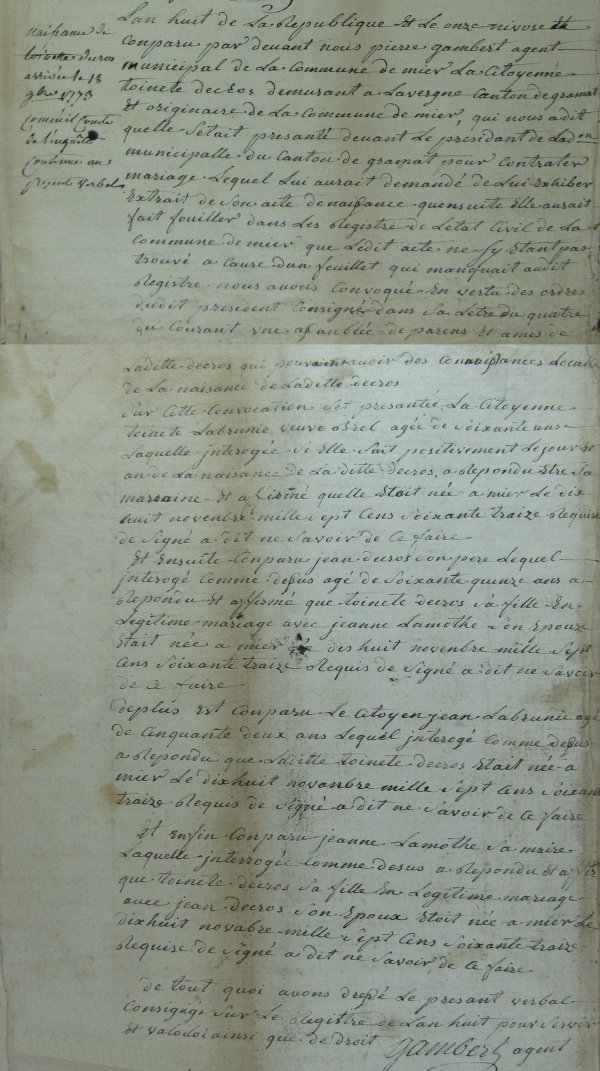 naissance de
toinette decros
arrivée le 18
9bre 1773
comme il conste
de l'enquette
contenue au
present verbal
Lan huit de La Republique Et Le onze nivose
Conparu par devant nous pierre gambert agent
municipal de La Commune de mier La Citoyenne
toinete decros demurant a Lavergne Canton de gramat
Et originaire de La Commune de mier, qui nous a dit
quelle setait presanté devant Le president de Ladon
municipalle du Canton de gramat pour Contrater
mariage Lequel Lui aurait demandé de Lui Exhiber
Extrait de Son acte de naissance quensuite Elle aurait
fait fouiller dans Les Registre de Letat Civil de La
Commune de mier que Ledit acte ne Sy Etant pas
trouvé a Cause dun feuillet qui manquait audit
Registre nous avons Convoqué En vertu des ordres
dudit president Consigné dans Sa Letre du quatre
du Courant une asanblée de parens Et amis de
Laditte decros qui pouvaient avoir des Connaissances Locale
de La naisance de Laditte decros
Sur Cette Convocation Set presantée La Citoyenne
toinete Labrunie veuve Brel agée de Soixante ans
Laquelle interogée Si Elle Sait positivement Le jour Et
an de La naisance de La ditte decros, a Repondu Etre Sa
marraine Et a quelle Etoit née a mier Le dix
huit novenbre mille Sept Cens Soixante traize Requise
de Signé a dit ne Savoir de Ce faire
Et Ensuite Conparu jean decros Son pere Lequel
interogé Comme desus agé de Soixante quenze ans a
Repondu Et affirmé que toinete decros Sa fille En
Legitime mariage avec jeanne Lamothe Son Epouze
Etait née a mier Le des huit novenbre mille Sept
Cens Soixante traize Requis de Signé a dit ne Savoir
de Ce faire
deplus Est Conparu Le Citoyen jean Labrunie agé
de Cinquante deux ans Lequel interogé Comme desus
a Repondu que Laditte toinete decros Etait née a
mier Le dixhuit novanbre mille Sept Cens Soixante
traize Requis de Signé a dit ne Savoir de Ce faire
Et Enfin Conparu jeanne Lamothe Sa maire
Laquelle interrogée Comme desus a Repondu Et affir
que toinete decros Sa fille En Legitime mariage
avec jean decros Son Epoux Etoit née a mier Le
dixhuit novabre mille Sept Cens Soixante traize
Requise de Signé a dit ne Savoir de Ce faire
de tout quoi avons dressé Le presant verbal
Consigné Sur Le Registre de Lan huit pour Servir
Et valoir ainsi que de droit gambert agent